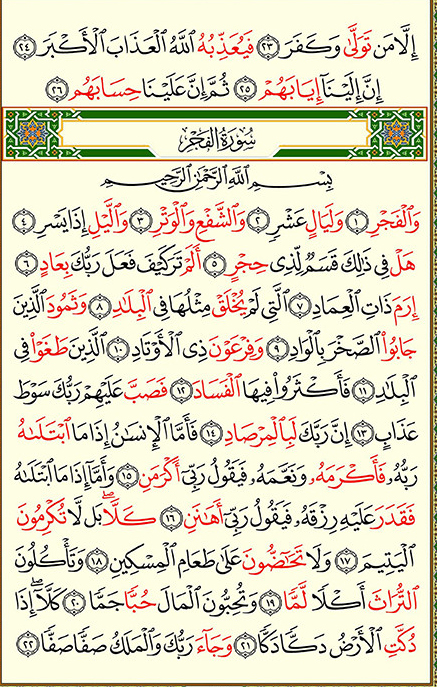 إِلَّا مَن تَوَلَّىٰ وَكَفَرَ ٢٣ فَيُعَذِّبُهُ ٱللَّهُ ٱلْعَذَابَ ٱلْأَكْبَرَ ٢٤
إِنَّ إِلَيْنَآ إِيَابَهُمْ ٢٥ ثُمَّ إِنَّ عَلَيْنَا حِسَابَهُم ٢٦
سُورَةُ الفَجْرِ
بِسْمِ ٱللَّهِ ٱلرَّحْمَٰنِ ٱلرَّحِيمِ
وَٱلْفَجْرِ ١ وَلَيَالٍ عَشْرٍ ٢ وَٱلشَّفْعِ وَٱلْوَتْرِ ٣ وَٱلَّيْلِ إِذَا يَسْرِ ٤
هَلْ فِى ذَٰلِكَ قَسَمٌ لِّذِى حِجْرٍ ٥ أَلَمْ تَرَ كَيْفَ فَعَلَ رَبُّكَ بِعَادٍ ٦
إِرَمَ ذَاتِ ٱلْعِمَادِ ٧ ٱلَّتِى لَمْ يُخْلَقْ مِثْلُهَا فِى ٱلْبِلَٰدِ ٨ وَثَمُودَ ٱلَّذِينَ
جَابُوا۟ ٱلصَّخْرَ بِٱلْوَادِ ٩ وَفِرْعَوْنَ ذِى ٱلْأَوْتَادِ ١٠ ٱلَّذِينَ طَغَوْا۟ فِى
ٱلْبِلَٰدِ ١١ فَأَكْثَرُوا۟ فِيهَا ٱلْفَسَادَ ١٢ فَصَبَّ عَلَيْهِمْ رَبُّكَ سَوْطَ
عَذَابٍ ١٣ إِنَّ رَبَّكَ لَبِٱلْمِرْصَادِ ١٤ فَأَمَّا ٱلْإِنسَٰنُ إِذَا مَا ٱبْتَلَىٰهُ
رَبُّهُۥ فَأَكْرَمَهُۥ وَنَعَّمَهُۥ فَيَقُولُ رَبِّىٓ أَكْرَمَنِ ١٥ وَأَمَّآ إِذَا مَا ٱبْتَلَىٰهُ
فَقَدَرَ عَلَيْهِ رِزْقَهُۥ فَيَقُولُ رَبِّىٓ أَهَٰنَنِ ١٦ كَلَّا ۖ بَل لَّا تُكْرِمُونَ
ٱلْيَتِيمَ ١٧ وَلَا تَحَٰٓضُّونَ عَلَىٰ طَعَامِ ٱلْمِسْكِينِ ١٨ وَتَأْكُلُونَ
ٱلتُّرَاثَ أَكْلًا لَّمًّا ١٩ وَتُحِبُّونَ ٱلْمَالَ حُبًّا جَمًّا ٢٠ كَلَّآ ۖ إِذَا
دُكَّتِ ٱلْأَرْضُ دَكًّا دَكًّا ٢١ وَجَآءَ رَبُّكَ وَٱلْمَلَكُ صَفًّا صَفًّا ٢٢